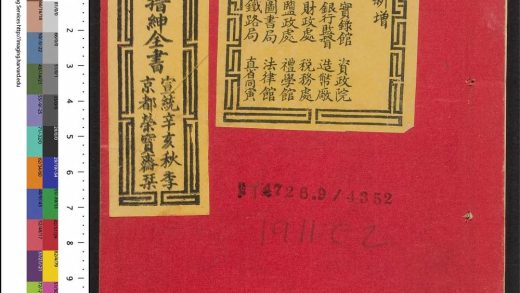 新增
實錄館 資政院
銀行監督 造幣廠
財政處 稅務處
鹽政處 禮學館
圖書局 法律館
鐵路局
縉紳全書
宣統辛亥秋季
京都榮寶齋栞
4726.9/4352
1911 C2
Services http://imaging.harvard.edu
2
3
4
5
6
7
8
9